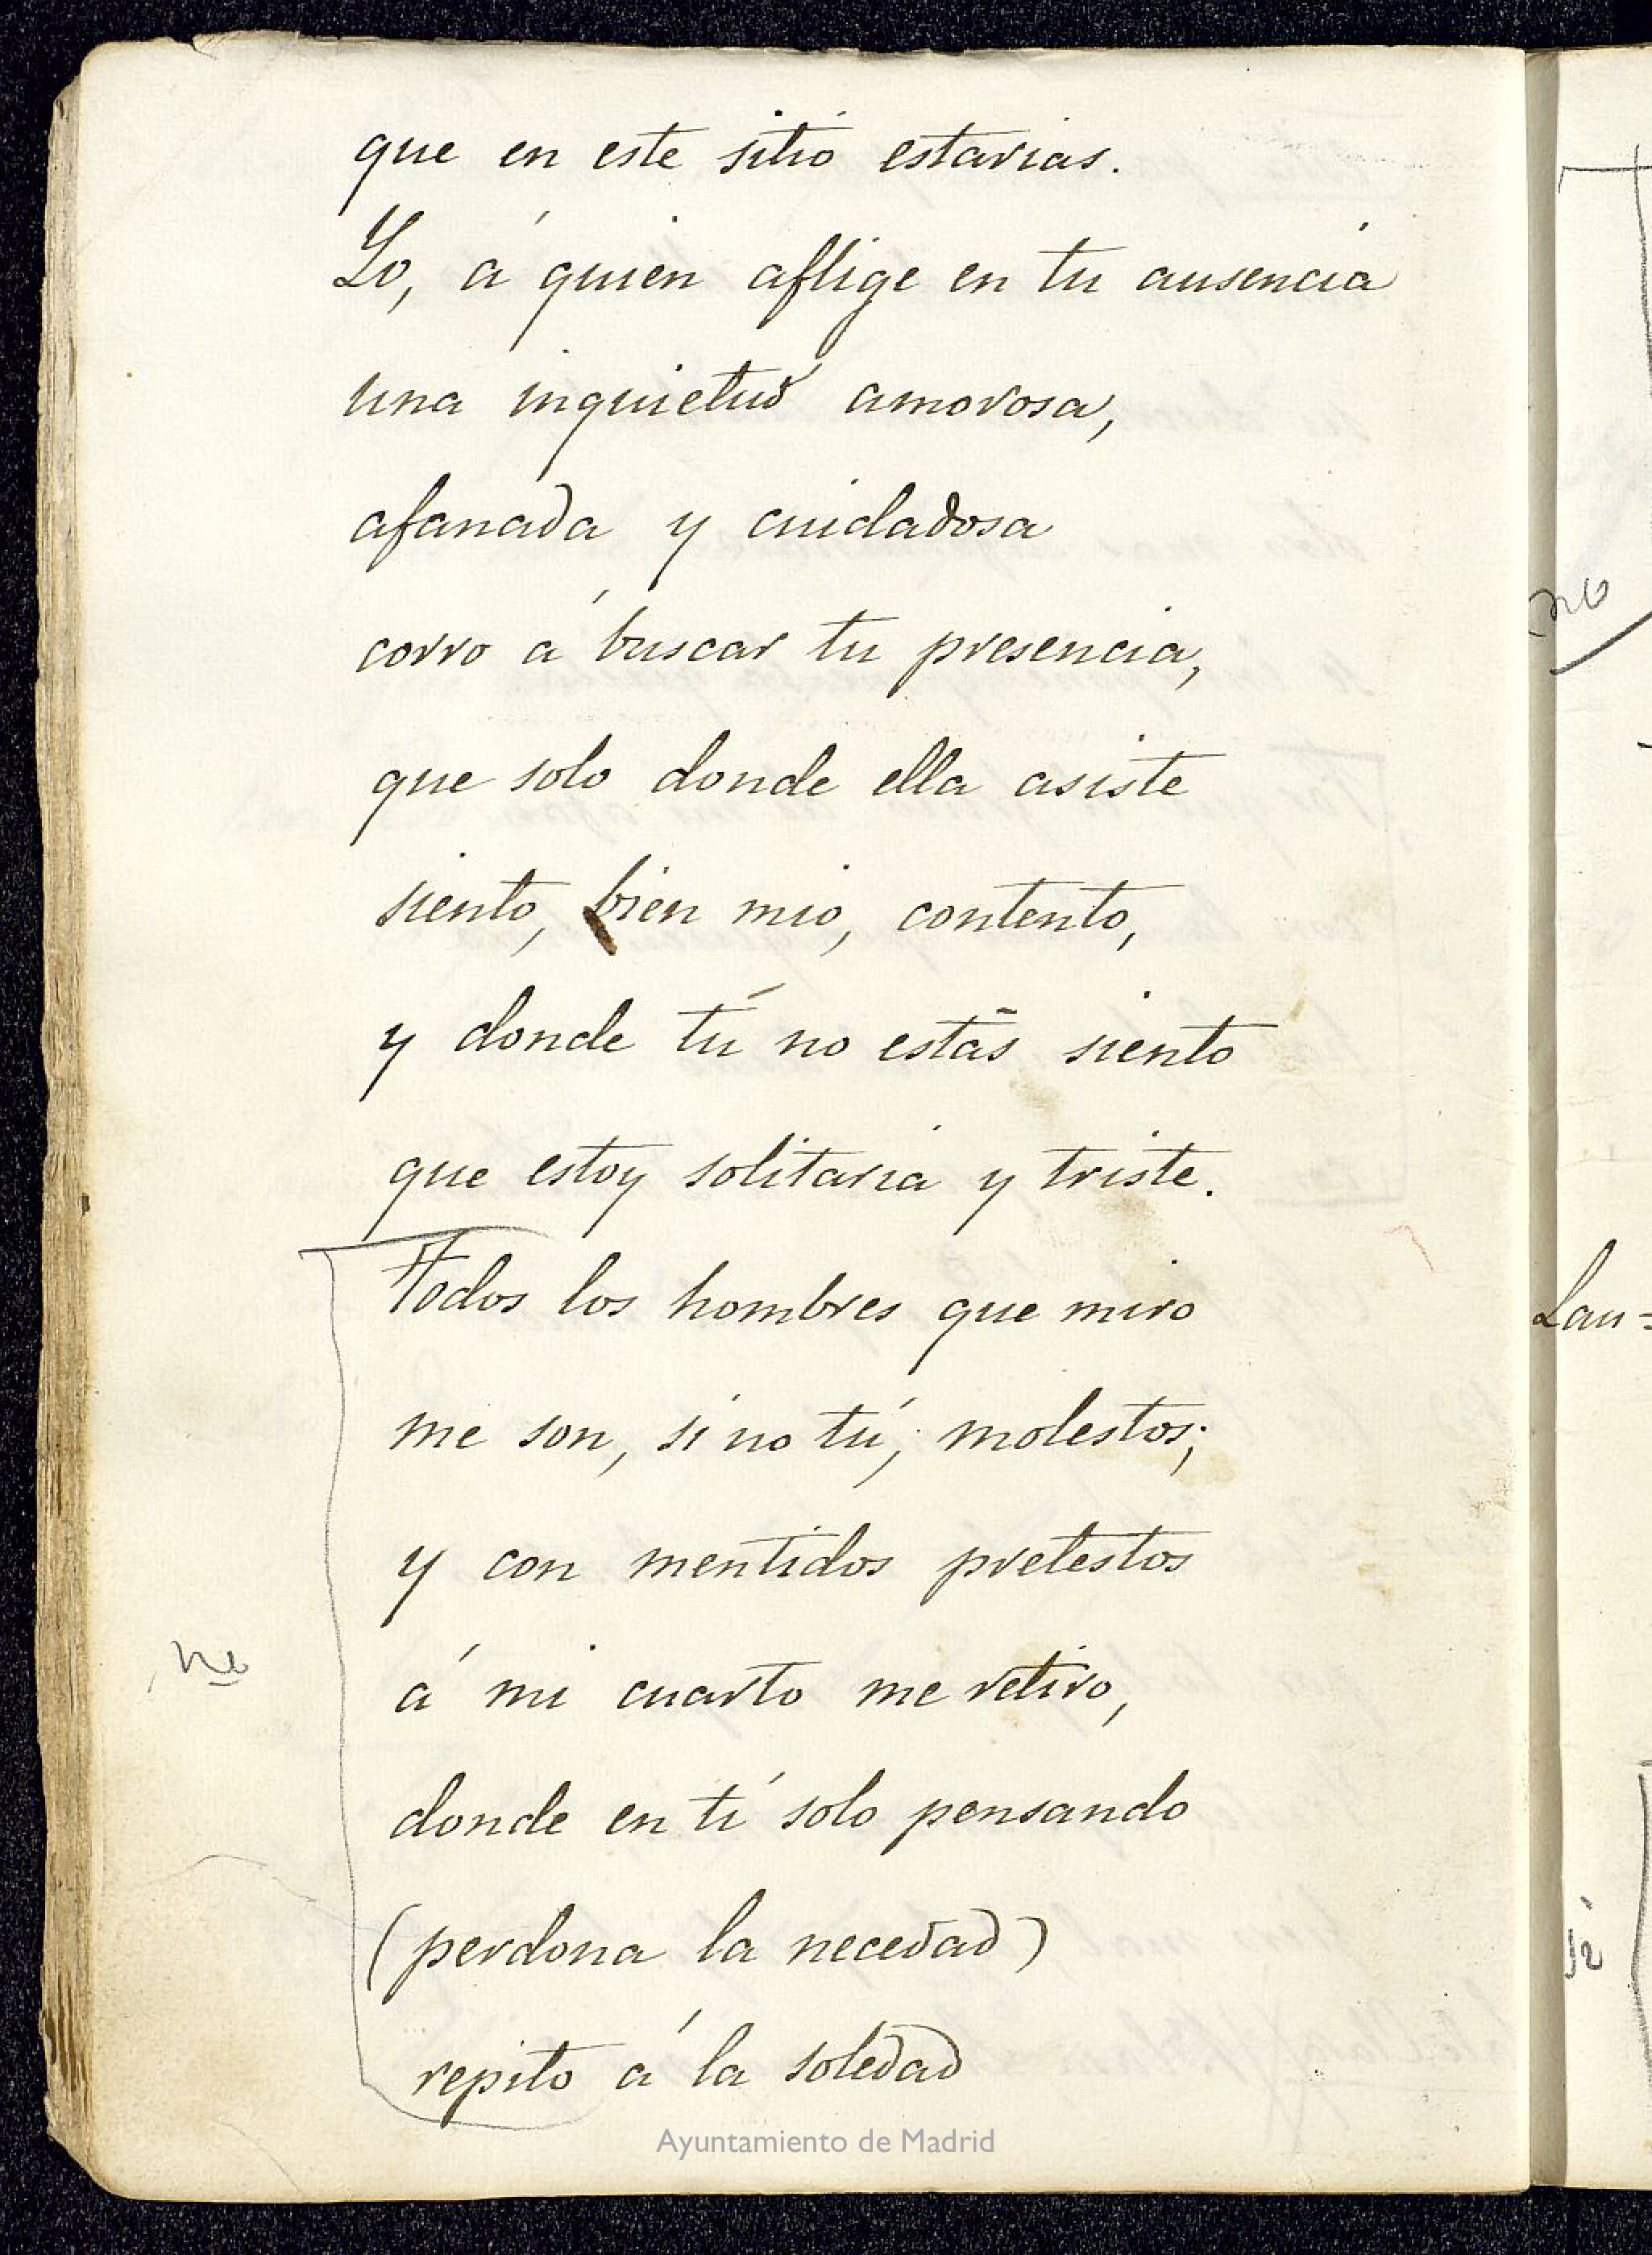 que en este sitio estarias.
Yo, á quien aflige en tu ausencia
una inquietud amorosa,
afanada y cuidadosa
corro á buscar tu presencia,
que solo donde ella asiste
siento, bien mio, contento,
y donde tú no estás siento
que estoy solitaria y triste.
Todos los hombres que miro
me son, si no tú, molestos;
y con mentidos pretestos
no
á mi cuarto me retiro,
donde en tí solo pensando
(perdona la necedad)
repito á la soledad
Ayuntamiento de Madrid
no
Lau=
si